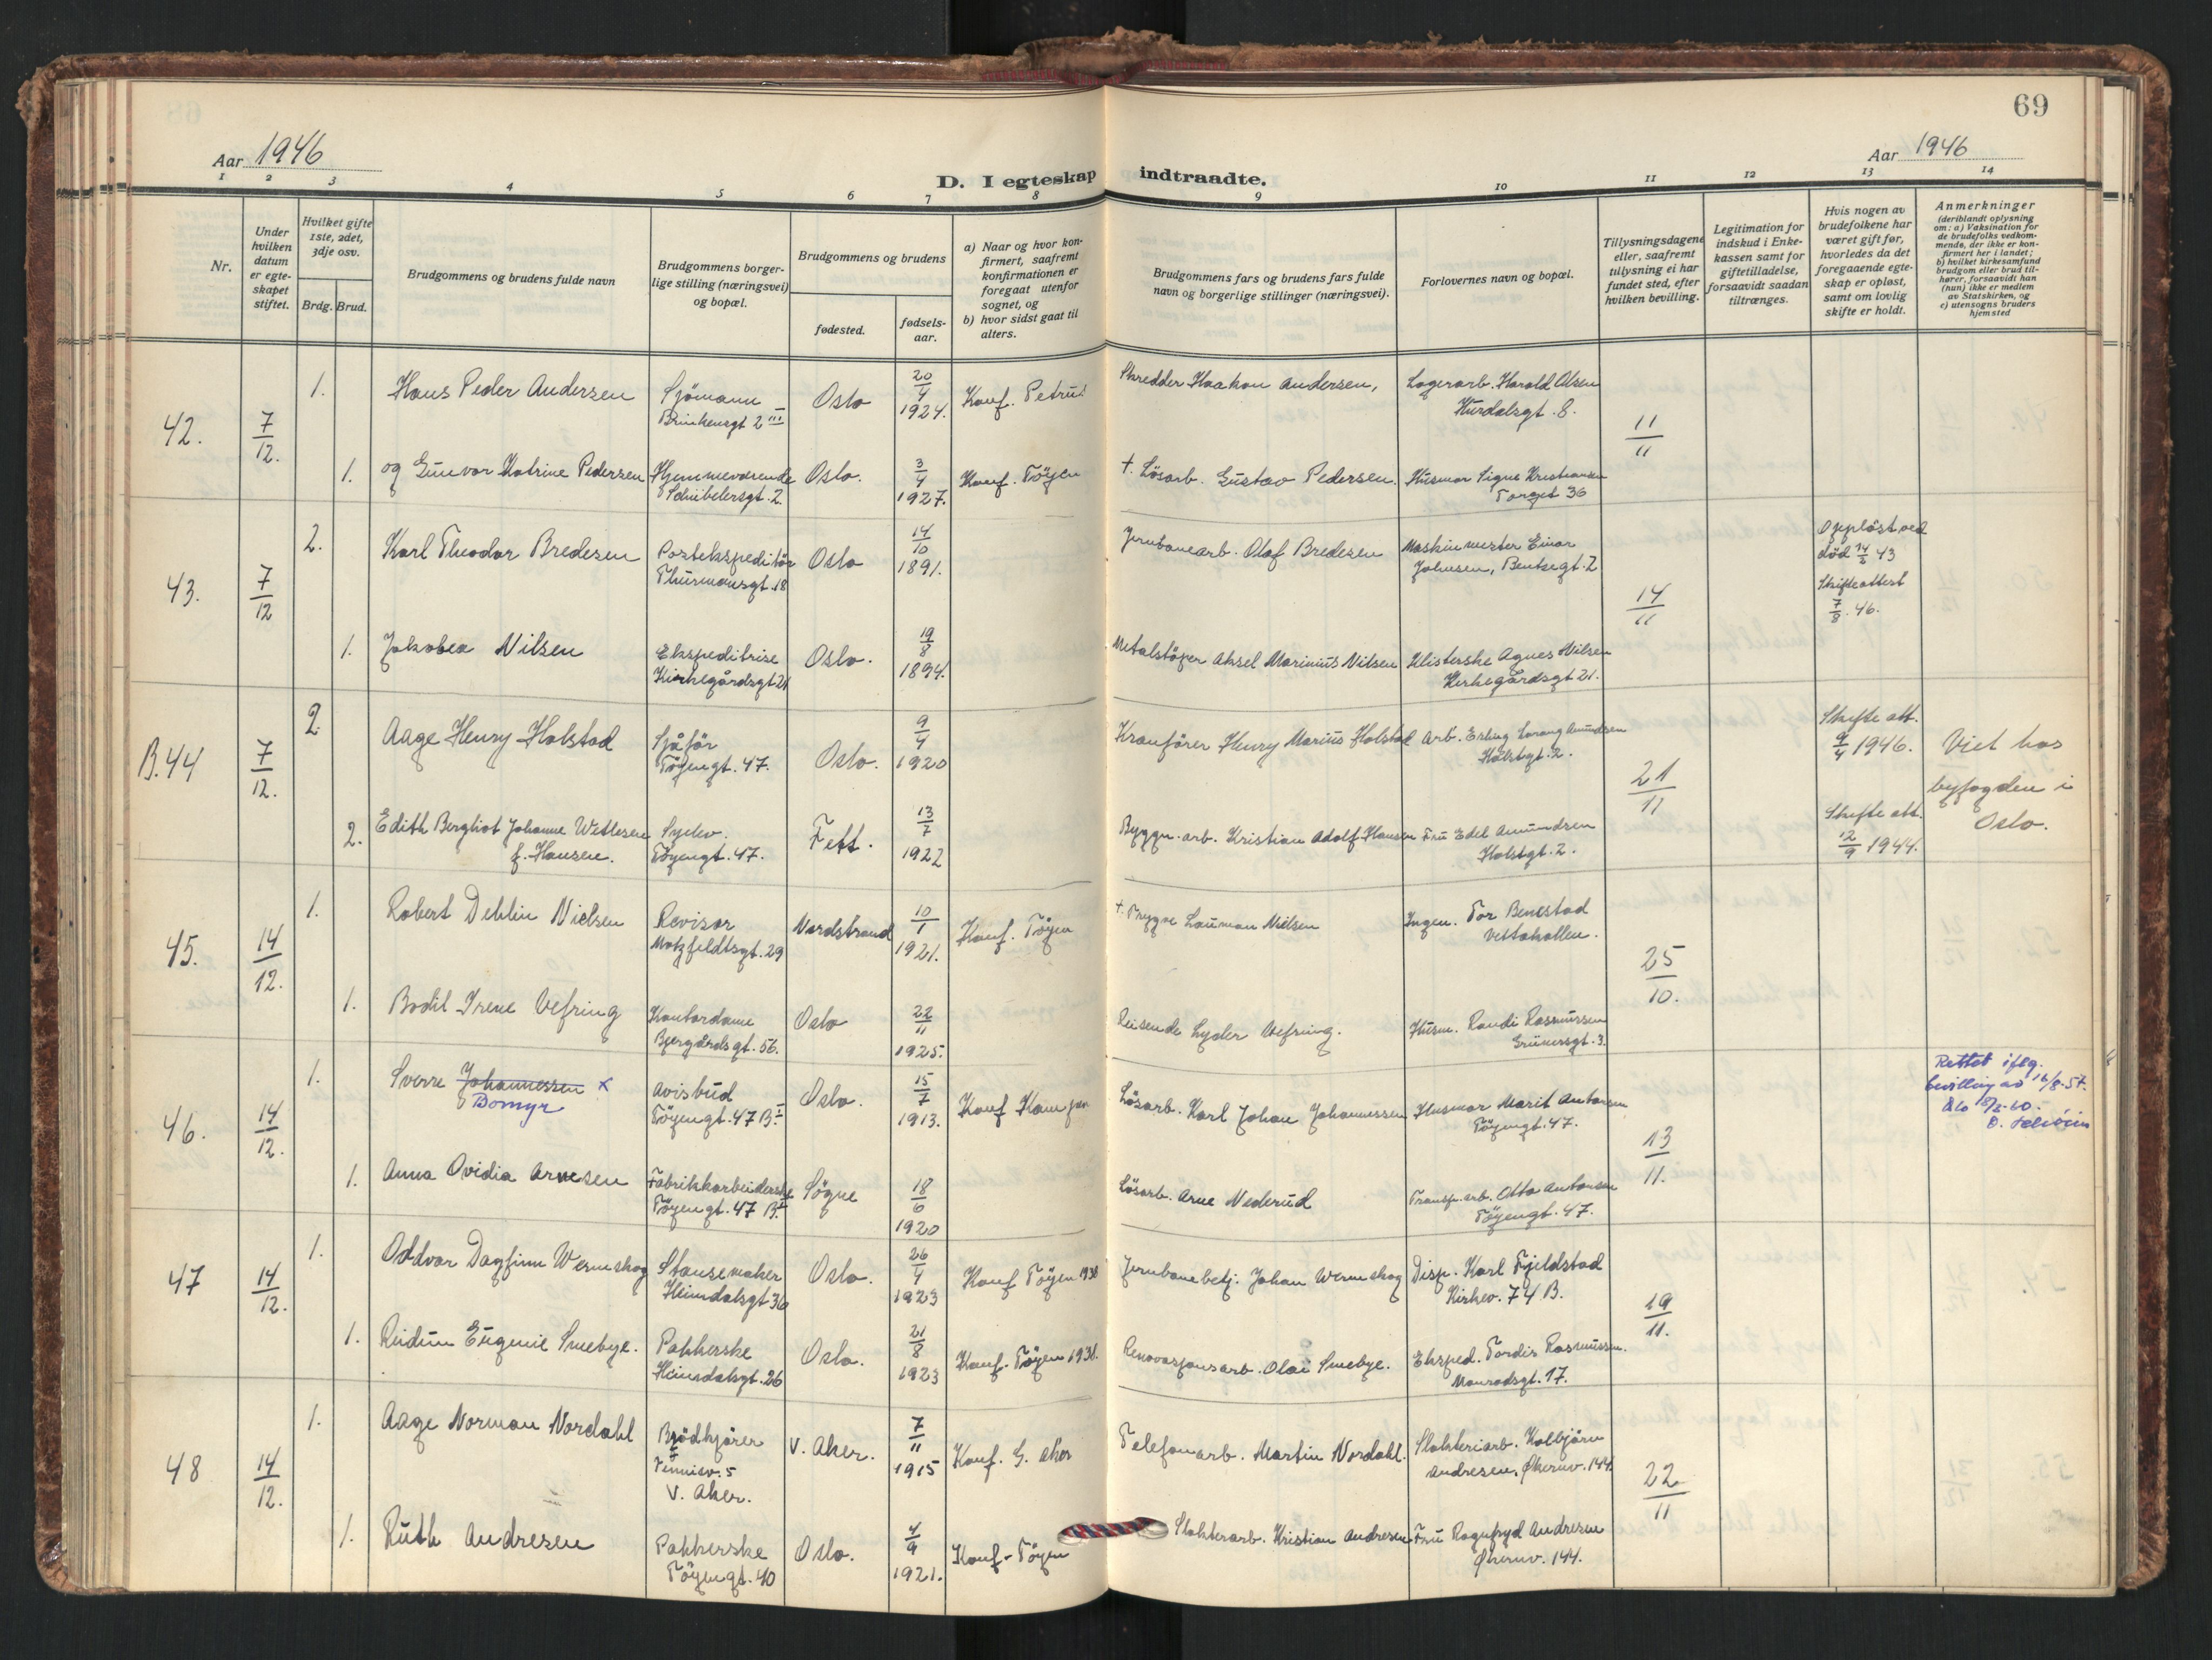 68
69
Aar 1946
Aar 1946
D. I egteskap indtraadte.
1 2 3 4 5 6 7 8 9 10 11 12 13 14
Nr.
Under hvilken datum er egteskapet stiftet.
Hvilket gifte 1ste, 2det, 3dje osv.
Brdg. Brud.
Brudgommens og brudens fulde navn
Brudgommens borgerlige stilling (næringsvei) og bopæl.
Brudgommens og brudens
fødested.
fødselsaar.
a) Naar og hvor konfirmert, saafremt konfirmationen er foregaat utenfor sognet, og
b) hvor sidst gaat til alters.
Brudgommens fars og brudens fars fulde navn og borgerlige stillinger (næringsvei).
Forlovernes navn og bopæl.
Tillysningsdagene eller, saafremt tillysning ei har fundet sted, efter hvilken bevilling.
Legitimation for indskud i Enkekassen samt for giftetilladelse, forsaavidt saadan tiltrænges.
Hvis nogen av brudefolkene har været gift før, hvorledes da det foregaaende egteskap er opløst, samt om lovlig skifte er holdt.
Anmerkninger
(deriblandt oplysning om: a) Vaksination for de brudefolks vedkommende, der ikke er konfirmert her i landet;
b) hvilket kirkesamfund brudgom eller brud tilhører, forsaavidt han (hun) ikke er medlem av Statskirken, og
c) utensogns bruders hjemsted
42. 7/12.
1. Hans Peder Andersen Sjömann Oslo 20/4 1924. Konf. Petrus Skredder Haakon Andersen, Lagerarb. Harold Olsen
Brinkensgt 2 III Hurdalsgt. 8.
11/11
1. og Gunvor Katrine Pedersen Hjemmeværende Oslo. 3/4 1927. Konf. Töyen † Lösarb. Gustav Pedersen. Husmor Signe Kristiansen
Schübelersgt. 2. Torget 36
43. 7/12
2. Karl Theodor Bredesen Postekspeditör Oslo 14/10 1891. Jernbanearb. Olaf Bredesen Maskinmester Einar
Thurmannsgt. 18 Johnsen, Bentsegt. 2
14/11
Oppløst ved
död 14/2 43
Skifteattest
7/8. 46.
1. Jakobea Nilsen Ekspeditrise Oslo. 19/8 1894. Metalstöper Aksel Marinius Nilsen Klisterske Agnes Nilsen
Kirkegårdsgt 21 Kirkegårdsgt 21.
B.44 7/12.
2. Aage Henry Holstad Sjåför Oslo. 9/4 1920 Kranförer Henry Marius Holstad Arb. Erling Lorang Amundsen
Töyengt. 47. Holstgt. 2.
21/11
Skifte att.
9/4 1946.
Viet hos
byfogden i
Oslo.
2. Edith Bergliot Johanne Wetlesen Syerv. Fett. 13/7 1922 Byggn. arb. Kristian Adolf Hansen Fru Edel Amundsen
f. Hansen. Töyengt. 47. Holstgt. 2.
Skifte att.
12/9 1944.
45. 14/12.
1. Robert Dehlin Nielsen Revisor Nordstrand 10/1 1921. Konf. Töyen † Trygve Lauman Nielsen Ingen. Tor Benestad
Motzfeldtsgt. 29 Vettakollen.
25/10.
1. Bodil Irene Vefring Kontordame Oslo 22/11 1925. Reisende Lyder Vefring. Husm. Randi Rasmussen
Bjergårdsgt. 56. Grünersgt. 3.
46. 14/12.
1. Sverre Johannessen x Avisbud Oslo. 15/7 1913. Konf Kampen Lösarb. Karl Johan Johannessen Husmor Marit Antonsen
Bomyr Töyengt. 47 B. I Töyengt. 47.
13/11.
Rettet iflg.
bevilling av 16/8-57.
1. Anna Ovidia Arnesen Fabrikkarbeiderske Sögne 18/6 1920 Lösarb. Arne Nederud Transp. arb. Otto Antonsen
Töyengt. 47 B. I Töyengt. 47.
47 14/12.
1. Oddvar Dagfinn Werneskog Stansemaker Oslo. 26/4 1923 Konf Töyen 1938 Jernbanebetj. Johan Werneskog Disp. Karl Fjeldstad
Heimdalsgt 36 Kirkev. 74 B.
19/11.
1. Reidun Eugenie Smebye. Pakkerske Oslo. 21/8 1923 Konf. Töyen 1938. Renovasjonsarb. Olai Smebye. Eksped. Tordis Rasmussen.
Heimdalsgt. 26 Monradsgt. 17.
48 14/12.
1. Aage Norman Nordahl Brödkjörer V. Aker. 7/11 1915 Konf. G. Aker Telefonarb. Martin Nordahl. Slakteriarb. Kolbjörn
Tennisv. 5 Andresen, Økernv. 144.
V. Aker.
22/11
1. Ruth Andresen Pakkerske Oslo. 4/9 1921. Konf. Töyen Slakterarb. Kristian Andresen Fru Ragnfryd Andresen
Töyengt. 40 Økernv. 144.